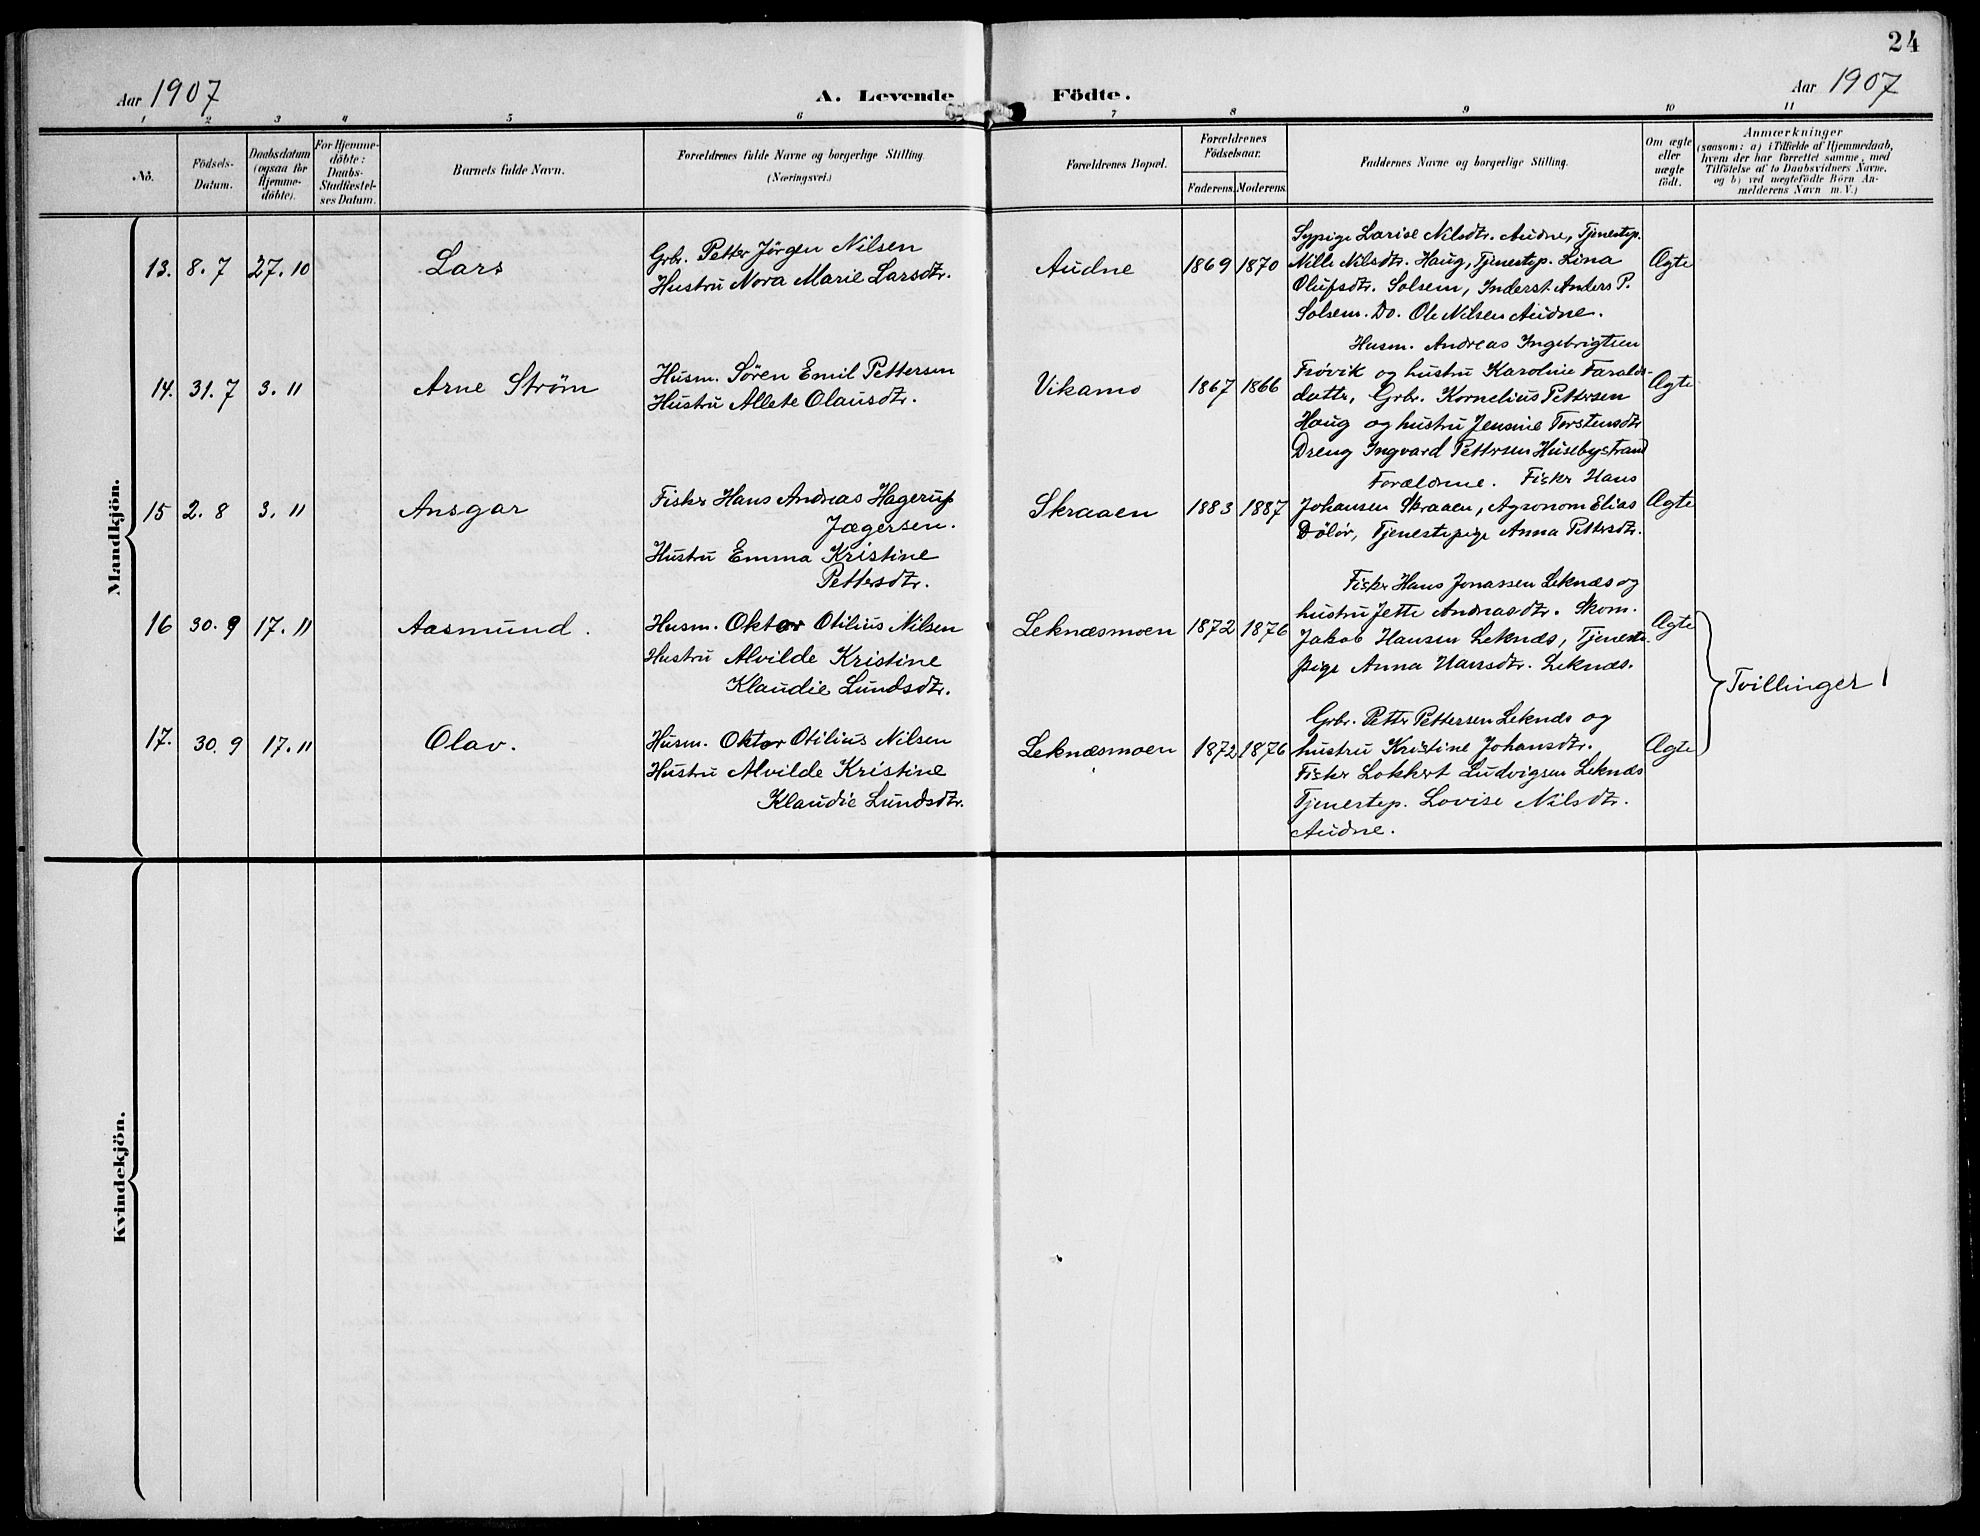 24
Aar 1907
A. Levende Födte.
Aar 1907
1 2 3 4 5 6 7 8 9 10 11
No.
Födsels-Datum.
Daabsdatum (ogsaa for Hjemme-döbte).
For Hjemme-döbte: Daabs-Stadfæstel-ses Datum.
Barnets fulde Navn.
Forældrenes fulde Navne og borgerlige Stilling.
(Næringsvei.)
Forældrenes Bopæl.
Forældrenes Födselsaar.
Faderens. Moderens.
Faddernes Navne og borgerlige Stilling.
Om ægte eller uægte födt.
Anmærkninger
(saasom: a) i Tilfælde af Hjemmedaab,
hvem der har forrettet samme, med
Tilföielse af to Daabsvidners Navne,
og b) ved uægtefödte Börn An-
melderens Navn m. V.)
Mandkjön.
13. 8. 7 27. 10 Lars
Grb. Petter Jörgen Nilsen
Hustru Nora Marie Larsdtr.
Audne 1869 1870
Sypige Larise Nilsdtr. Audne, Tjenestep.
Nille Nilsdtr. Haug, Tjenestep. Lina
Olufsdtr. Solsem, Inderst Anders P.
Solsem. Do. Ole Nilsen Audne.
Ægte
14. 31. 7 3. 11 Arne Strøm
Husm. Sören Emil Pettersen
Hustru Allete Olausdtr.
Vikamo 1867 1866
Husm. Andreas Ingebrigtsen
Frövik og hustru Karoline Faralds-
datter, Grbr. Kornelius Pettersen
Haug og hustru Jensine Torstensdtr
Dreng Ingvard Pettersen Husebystrand
Ægte
15 2. 8 3. 11 Ansgar
Fisker Hans Andreas Hagerup
Jægersen.
Hustru Emma Kristine
Pettersdtr.
Skraaen 1883 1887
Forældrene. Fisker Hans
Johansen Skraaen, Agronom Elias
Dölör, Tjenestepige Anna Pettersdtr.
Ægte
16 30. 9 17. 11 Aasmund.
Husm. Oktav Otilius Nilsen
Hustru Alvilde Kristine
Klaudie Lundsdtr.
Leknæsmoen 1872 1876
Fisker Hans Jonassen Leknæs og
hustru Jette Andreasdtr. Skom.
Jakob Hansen Leknæs, Tjeneste-
pige Anna Hansdtr. Leknæs.
Ægte
Tvillinger 1
17. 30. 9 17. 11 Olav.
Husm. Oktav Otilius Nilsen
Hustru Alvilde Kristine
Klaudie Lundsdtr.
Leknæsmoen 1872 1876
Grbr. Petter Pettersen Leknæs og
hustru Kristine Johansdtr.
Fisker Lokkert Ludvigsen Leknæs
Tjenestep. Lovise Nilsdtr.
Audne.
Ægte
Kvindekjön.